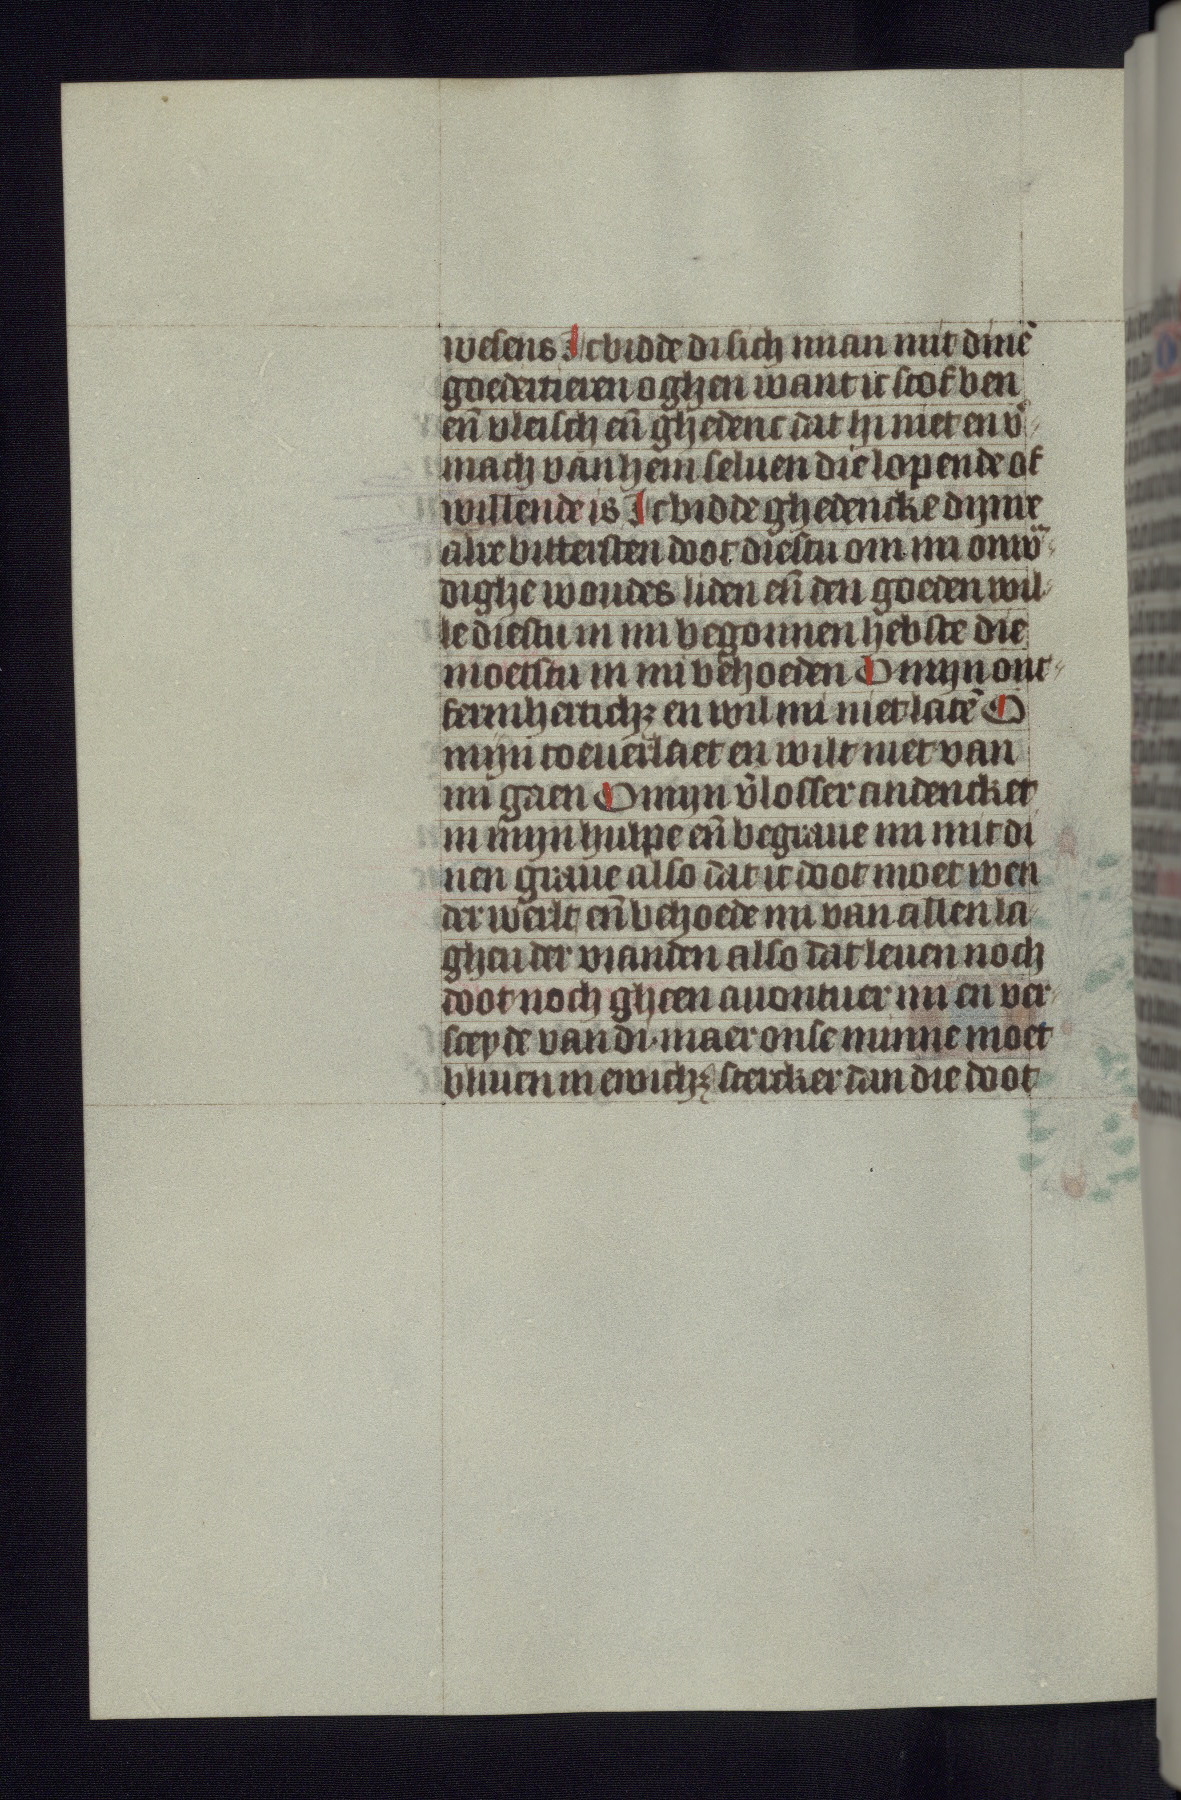 wesens Ic bidde di sich mi an mit dinē
goedertieren oghen want ic stof ben
en̄ vleisch en̄ ghedenc dat hi niet en v̄
mach van hem seluen die lopende of
willende is Ic bidde ghedencke dijnre
alre bittersten doot diestu om mi onw̄
dighe woudes liden en̄ den goeden wil
le diestu in mi begonnen hebste die
moetstu in mi behoeden O mijn ont
fermhertichꝫ en wil mi niet latē O
mijn toeuerlaet en wilt niet van
mi gaen O mijn v̄losser andencket
in mijn hulpe en̄ begraue mi mit di
nen graue also dat ic doot moet wen
der werlt en̄ behoede mi van allen la
ghen der vianden also dat leuen noch
doot noch gheen auontuer mi en ver
sceyde van di. maer onse minne moet
bliuen in ewichꝫ stercker dan die doot